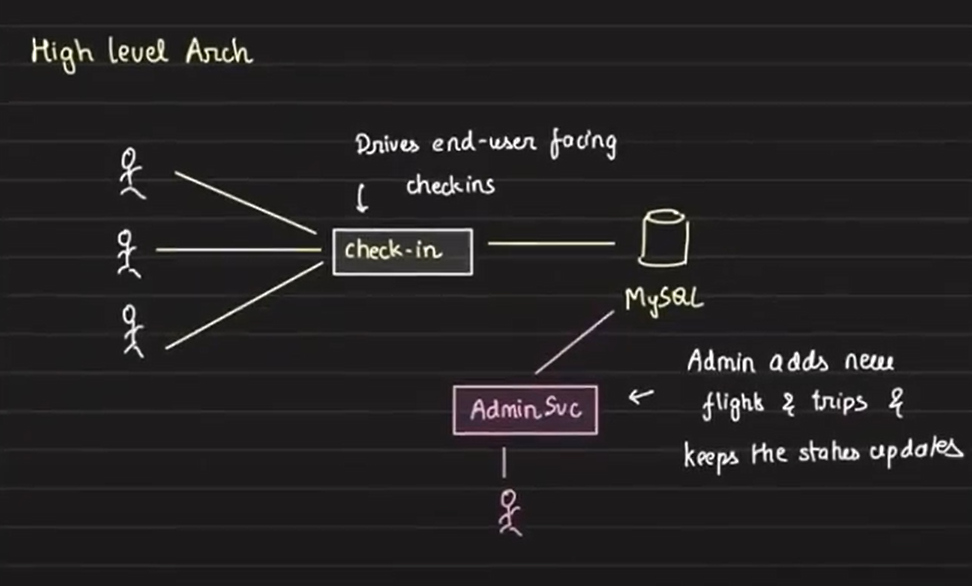 High level Arch
Drives end-user facing
checkins
check-in
MySQL
Admin adds new
flights & trips &
keeps the status updates
Admin Svc